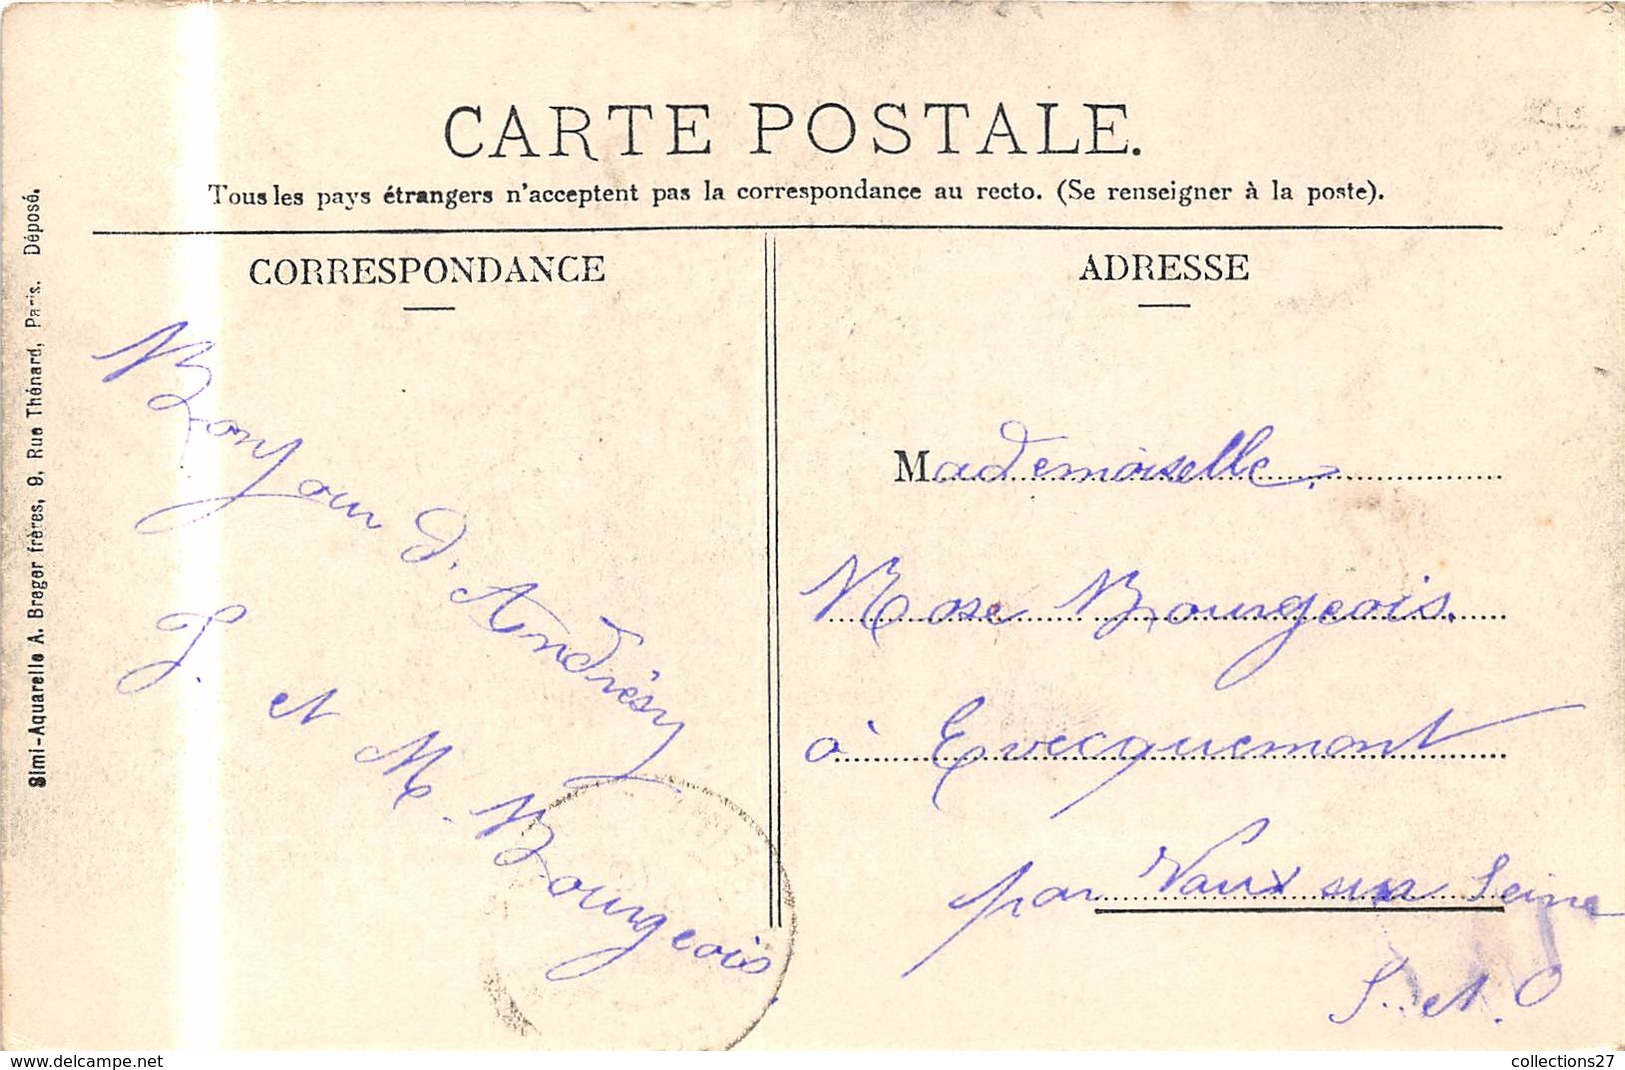 CARTE POSTALE.
Tous les pays étrangers n'acceptent pas la correspondance au recto. (Se renseigner à la poste).
Simi-Aquarelle A. Breger frères, 9, Rue Thénard, Paris. Déposé.
CORRESPONDANCE
Bonjour d'Andrésy
J. et M. Bourgeois.
ADRESSE
Mademoiselle
Rose Bourgeois.
à Evecquemont
par Vaux sur Seine
S. et O
collections27